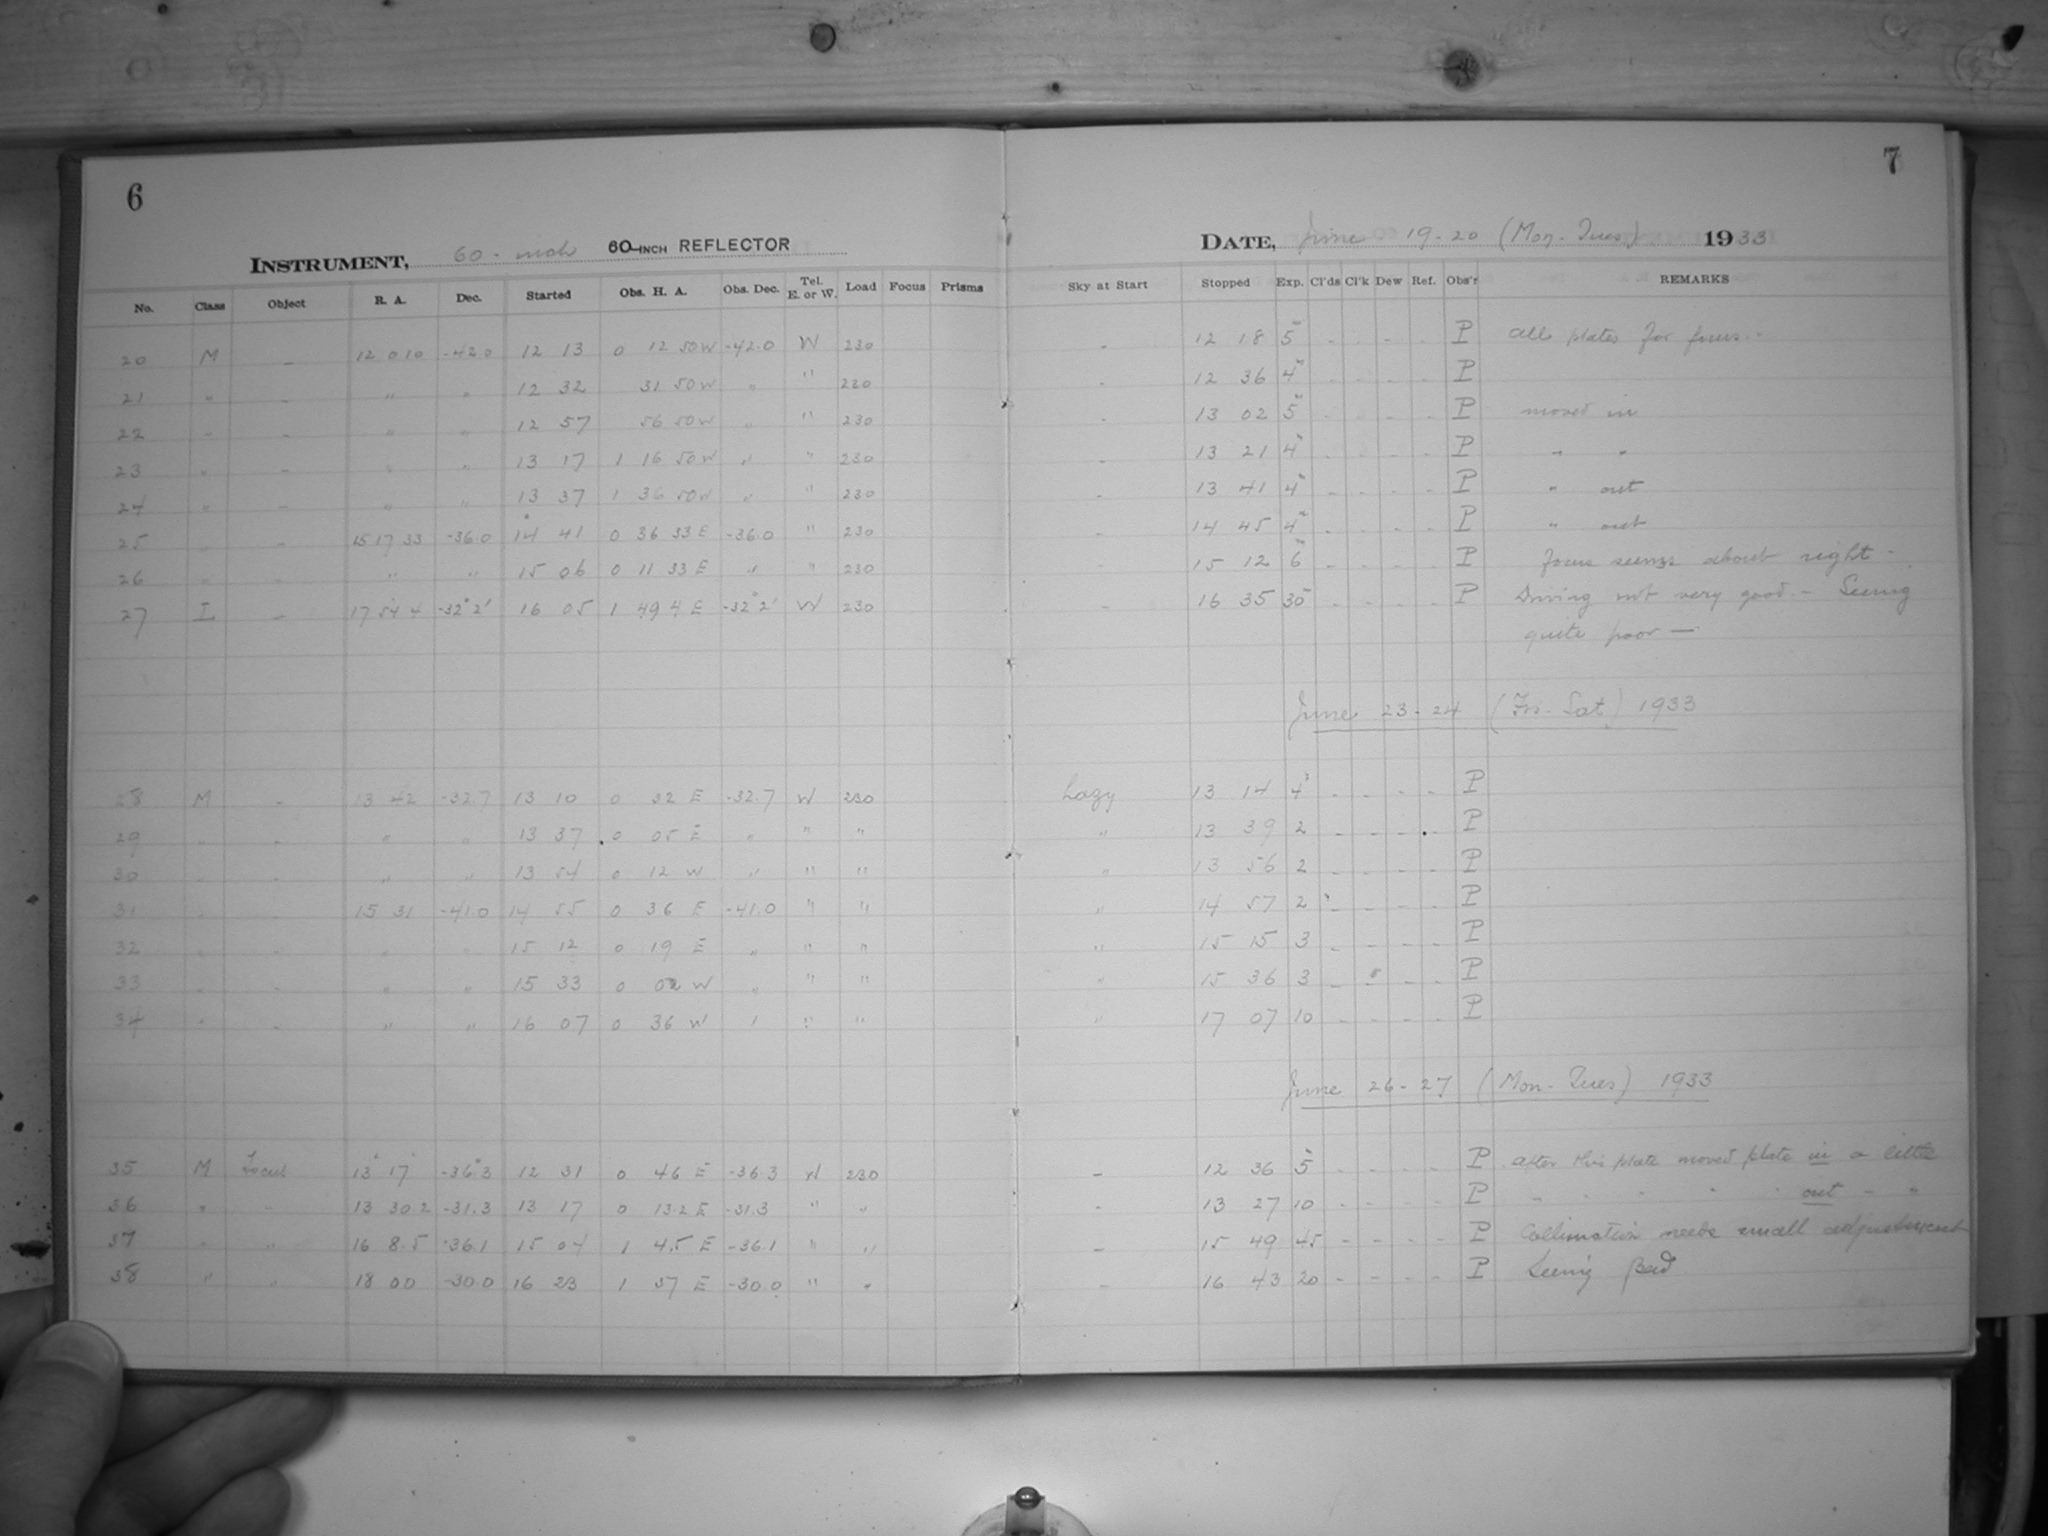 6
7
INSTRUMENT, 60-inch 60-INCH REFLECTOR
DATE, June 19-20 (Mon-Tues) 1933
No. Class Object R. A. Dec. Started Obs. H. A. Obs. Dec. Tel. E. or W. Load Focus Prisms Sky at Start Stopped Exp. Cl'ds Cl'k Dew Ref. Obs'r REMARKS
20 M - 12 0 10 -42.0 12 13 0 12 50W -42.0 W 230 - 12 18 5m - - - - P All plates for focus.-
21 " - " " 12 32 31 50W " " 230 - 12 36 4m - - - - P
22 " - " " 12 57 56 50W " " 230 - 13 02 5m - - - - P moved in
23 " - " " 13 17 1 16 50W " " 230 - 13 21 4m - - - - P " "
24 " - " " 13 37 1 36 50W " " 230 - 13 41 4m - - - - P " out
25 " - 15 17 33 -36.0 14 41 0 36 33 E -36.0 " 230 - 14 45 4m - - - - P " out
26 " - " " 15 06 0 11 33 E " " 230 - 15 12 6m - - - - P Focus seems about right -
27 I - 17 54 4 -32° 2' 16 05 1 49 4 E -32° 2' W 230 - 16 35 30m - - - - P Driving not very good - Seeing
quite poor —
June 23-24 (Fri-Sat) 1933
28 M - 13 42 -32.7 13 10 0 32 E -32.7 W 230 hazy 13 14 4m - - - - P
29 " - " " 13 37 0 05 E " " " " 13 39 2 - - - - P
30 " - " " 13 54 0 12 W " " " " 13 56 2 - - - - P
31 " - 15 31 -41.0 14 55 0 36 E -41.0 " " " 14 57 2 - - - - P
32 " - " " 15 12 0 19 E " " " " 15 15 3 - - - - P
33 " - " " 15 33 0 02 W " " " " 15 36 3 - - - - P
34 " - " " 16 07 0 36 W " " " " 17 07 10 - - - - P
June 26-27 (Mon-Tues) 1933
35 M Focus 13 17 -36°3 12 31 0 46 E -36.3 W 230 - 12 36 5m - - - - P After this plate moved plate in a little
36 " " 13 30.2 -31.3 13 17 0 13.2 E -31.3 " " - 13 27 10 - - - - P " " " " " out " "
37 " " 16 8.5 -36.1 15 04 1 4.5 E -36.1 " " - 15 49 45 - - - - P Collimation needs small adjustment
38 " " 18 00 -30.0 16 23 1 37 E -30.0 " " - 16 43 20 - - - - P Seeing Bad